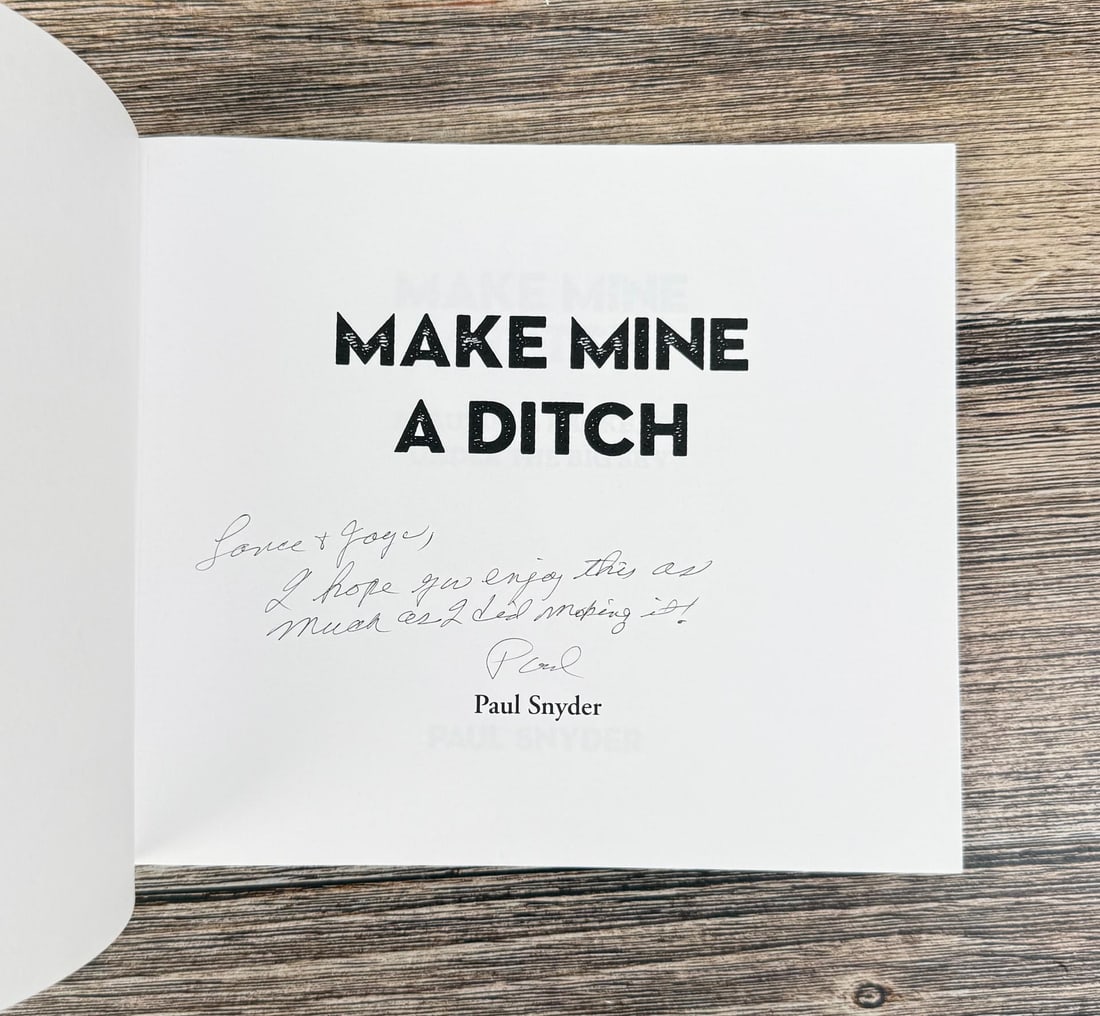 MAKE MINE
A DITCH
Lance + Joyce,
I hope you enjoy this as
much as I did making it!
Paul
Paul Snyder
MAKE MINE
PAUL SNYDER